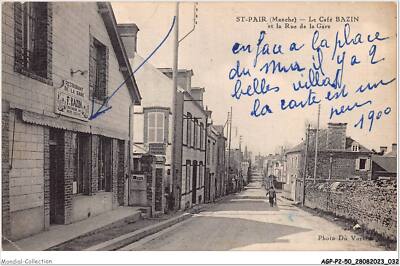 ST-PAIR (Manche) — Le Café BAZIN
et la Rue de la Gare
en face a la place
du mur il y a 2
belles villas
la carte est un
peu 1900
RESTAURANT
DE LA GARE
F. BAZIN
Photo Du Var
Mondial-Collection
AGP-P2-50_28082023_032